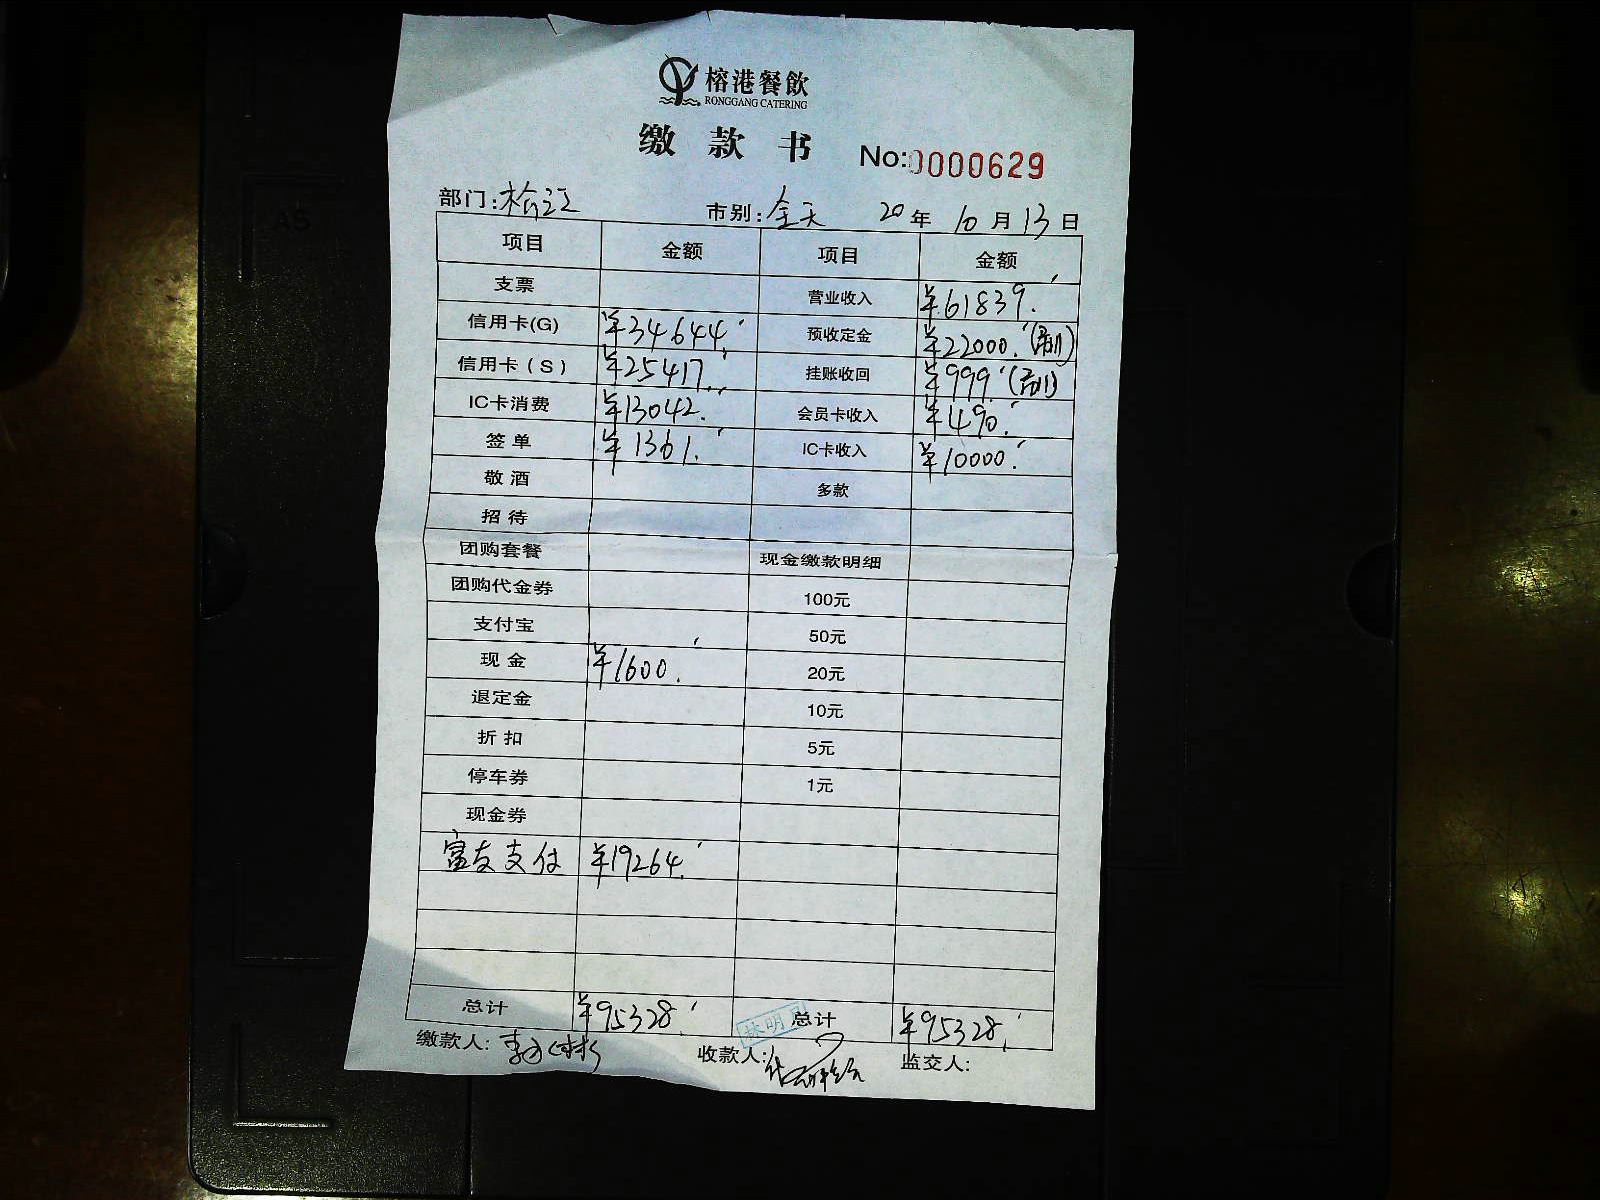 榕港餐飲
RONGGANG CATERING
缴款书 No:0000629
部门: 市别:全天 20年10月13日
项目 金额 项目 金额
支票 营业收入 ¥61839.
信用卡(G) ¥34644. 预收定金 ¥22000.
信用卡(S) ¥25417. 挂账收回 ¥999.
IC卡消费 ¥13042. 会员卡收入 ¥490.
签单 ¥1361. IC卡收入 ¥10000.
敬酒 多款
招待
团购套餐 现金缴款明细
团购代金券 100元
支付宝 50元
现金 ¥1600. 20元
退定金 10元
折扣 5元
停车券 1元
现金券
富友支付 ¥19264.
总计 ¥95328. 总计 ¥95328.
缴款人: 收款人: 监交人: